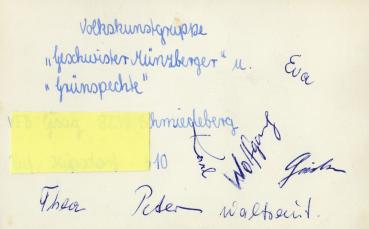 Volkskunstgruppe
„Geschwister Münzberger" u.
„Grünspechte"
Eva
Schmiedeberg
10
Wolfgang
Thea Peter Waltraut.